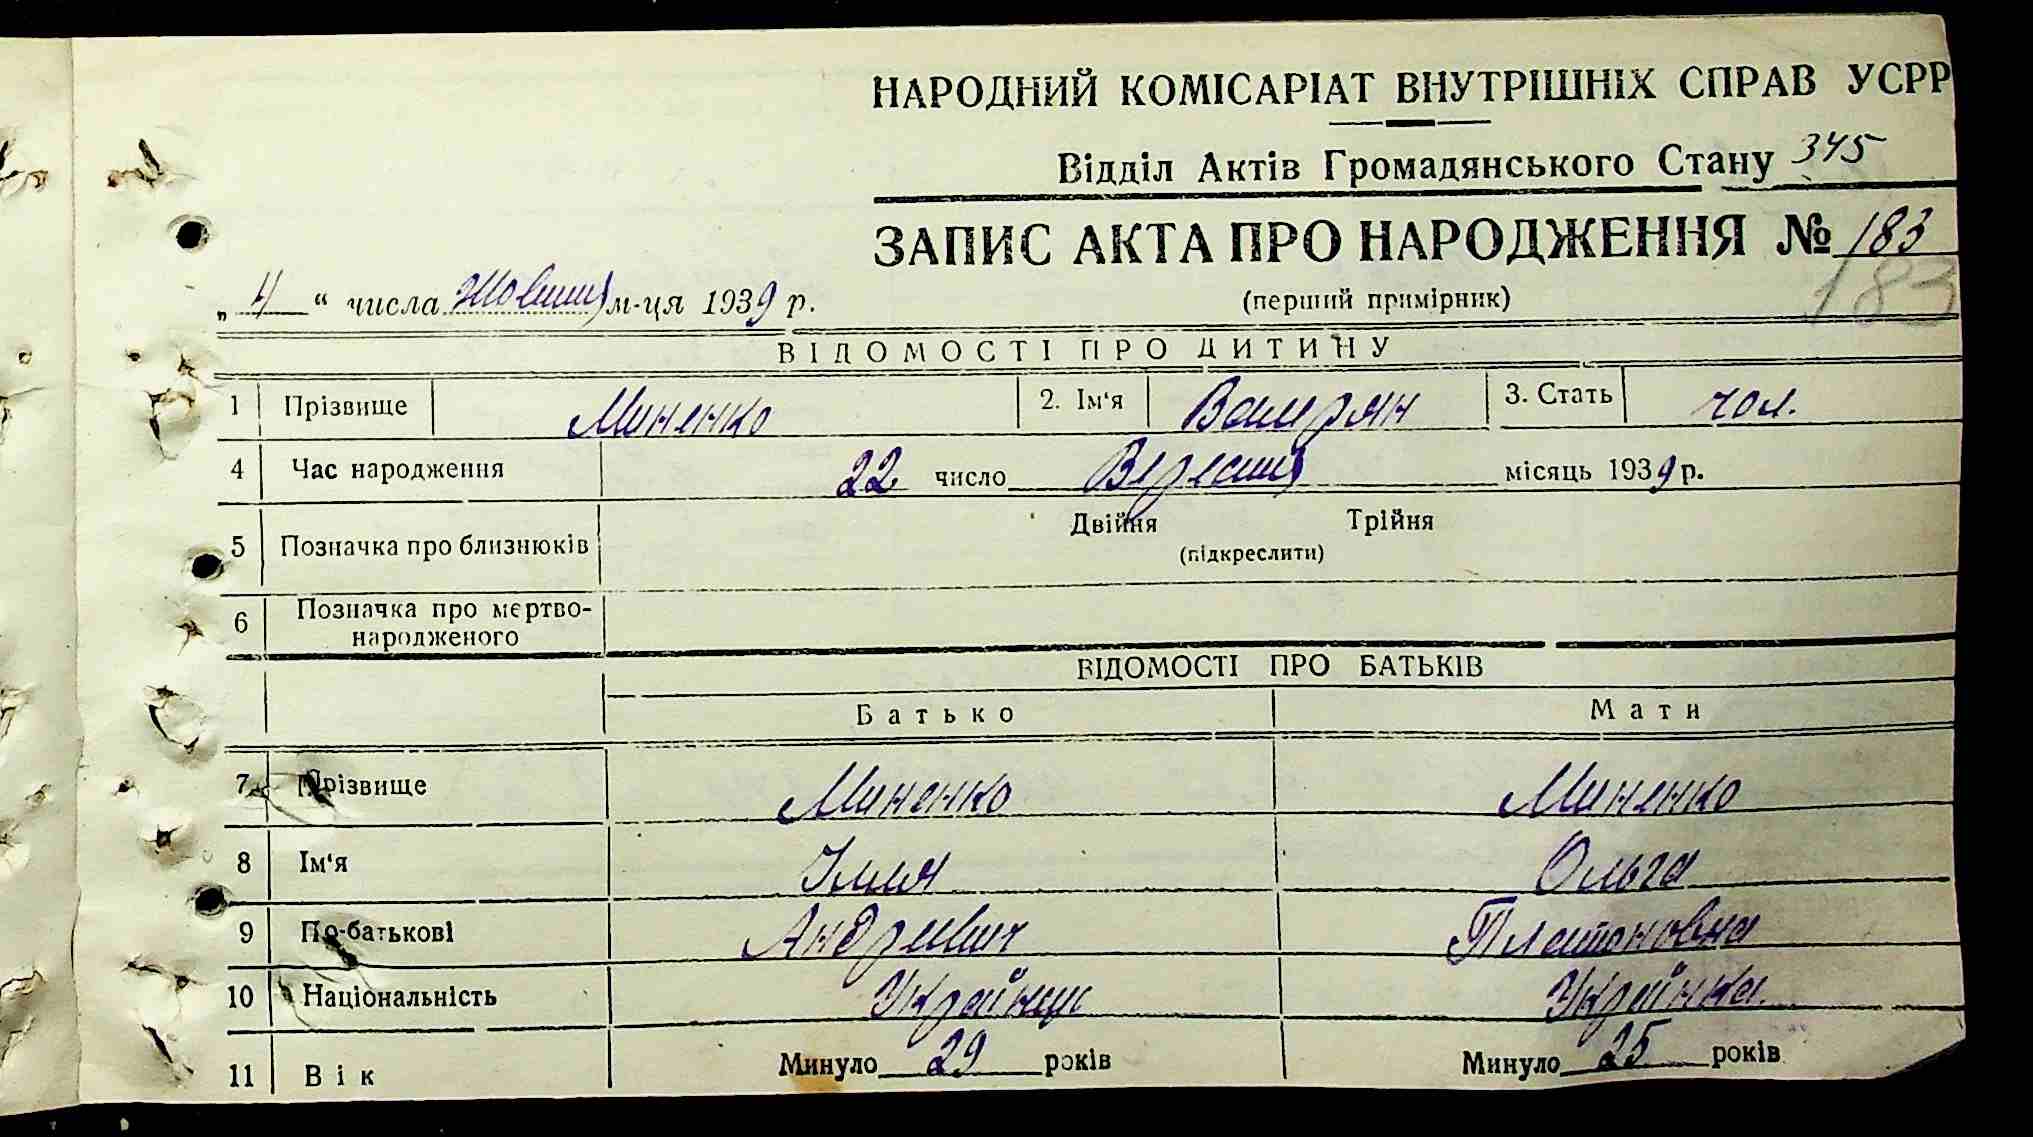 НАРОДНИЙ КОМІСАРІАТ ВНУТРІШНІХ СПРАВ УСРР
Відділ Актів Громадянського Стану 345
ЗАПИС АКТА ПРО НАРОДЖЕННЯ № 183
„ 4 “ числа Жовтня м-ця 1939 р. (перший примірник) 183
ВІДОМОСТІ ПРО ДИТИНУ
1 Прізвище Миненко 2. Ім'я Валерян 3. Стать чол.
4 Час народження 22 число Вересня місяць 1939 р.
5 Позначка про близнюків Двійня Трійня
(підкреслити)
6 Позначка про мертво-
народженого
ВІДОМОСТІ ПРО БАТЬКІВ
Батько Мати
7 Прізвище Миненко Миненко
8 Ім'я Ілля Ольга
9 По-батькові Андревич Платоновна
10 Національність Українець Українка
11 Вік Минуло 29 років Минуло 25 років